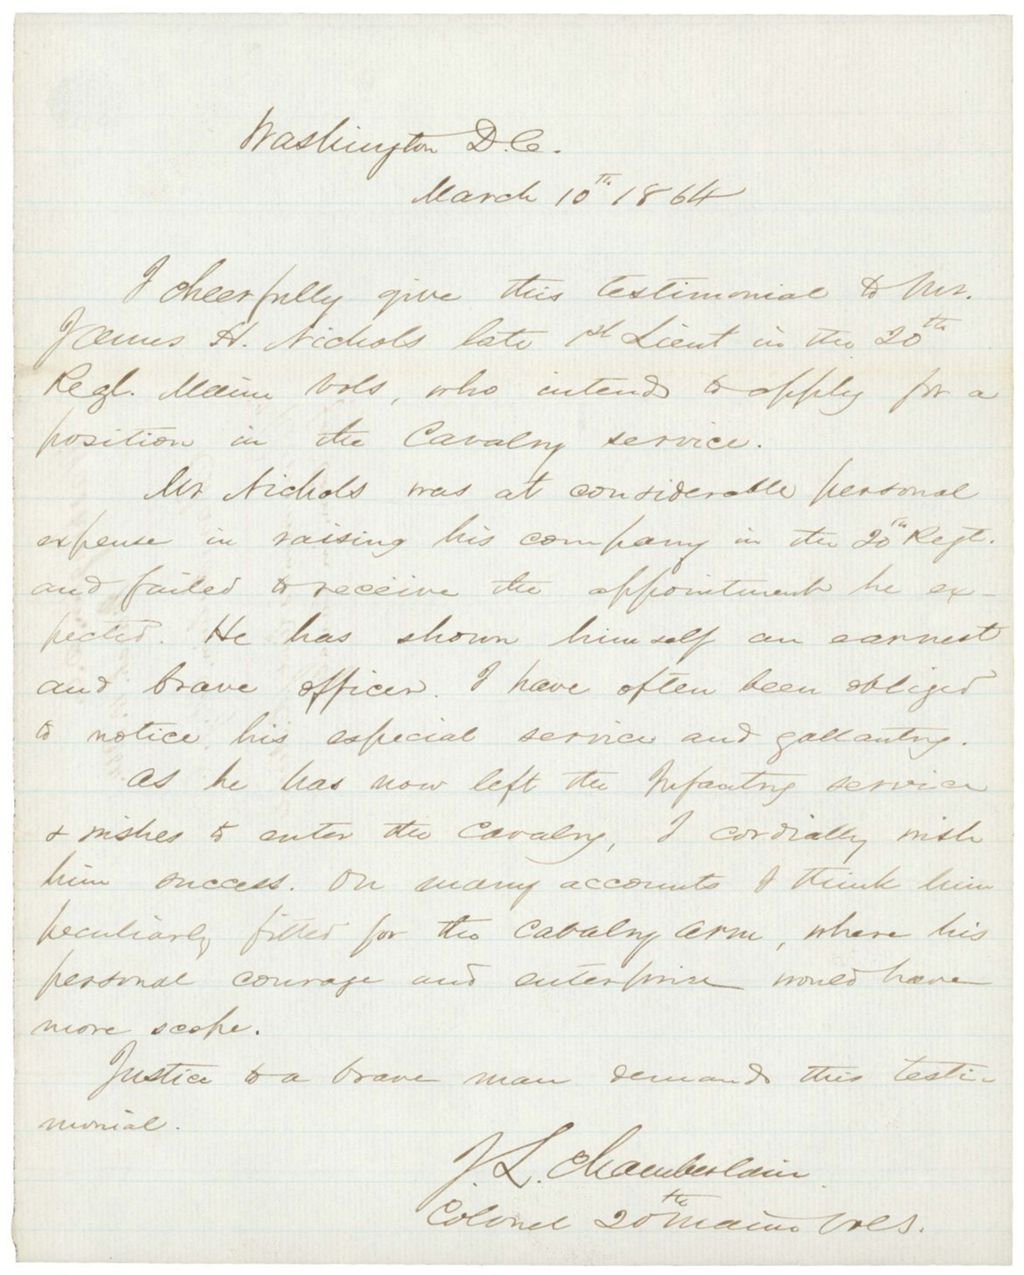 Washington D.C.
March 10th 1864
I cheerfully give this testimonial to Mr.
James H. Nichols late 1st Lieut in the 20th
Regt. Maine Vols, who intends to apply for a
position in the Cavalry service.
Mr Nichols was at considerable personal
expense in raising his company in the 20th Regt.
and failed to receive the appointment he ex-
pected. He has shown himself an earnest
and brave officer. I have often been obliged
to notice his especial service and gallantry.
As he has now left the Infantry service
& wishes to enter the Cavalry, I cordially wish
him success. On many accounts I think him
peculiarly fitted for the Cavalry Arm, where his
personal courage and enterprise would have
more scope.
Justice to a brave man demands this testi-
monial.
J. L. Chamberlain
Colonel 20th Maine Vols.